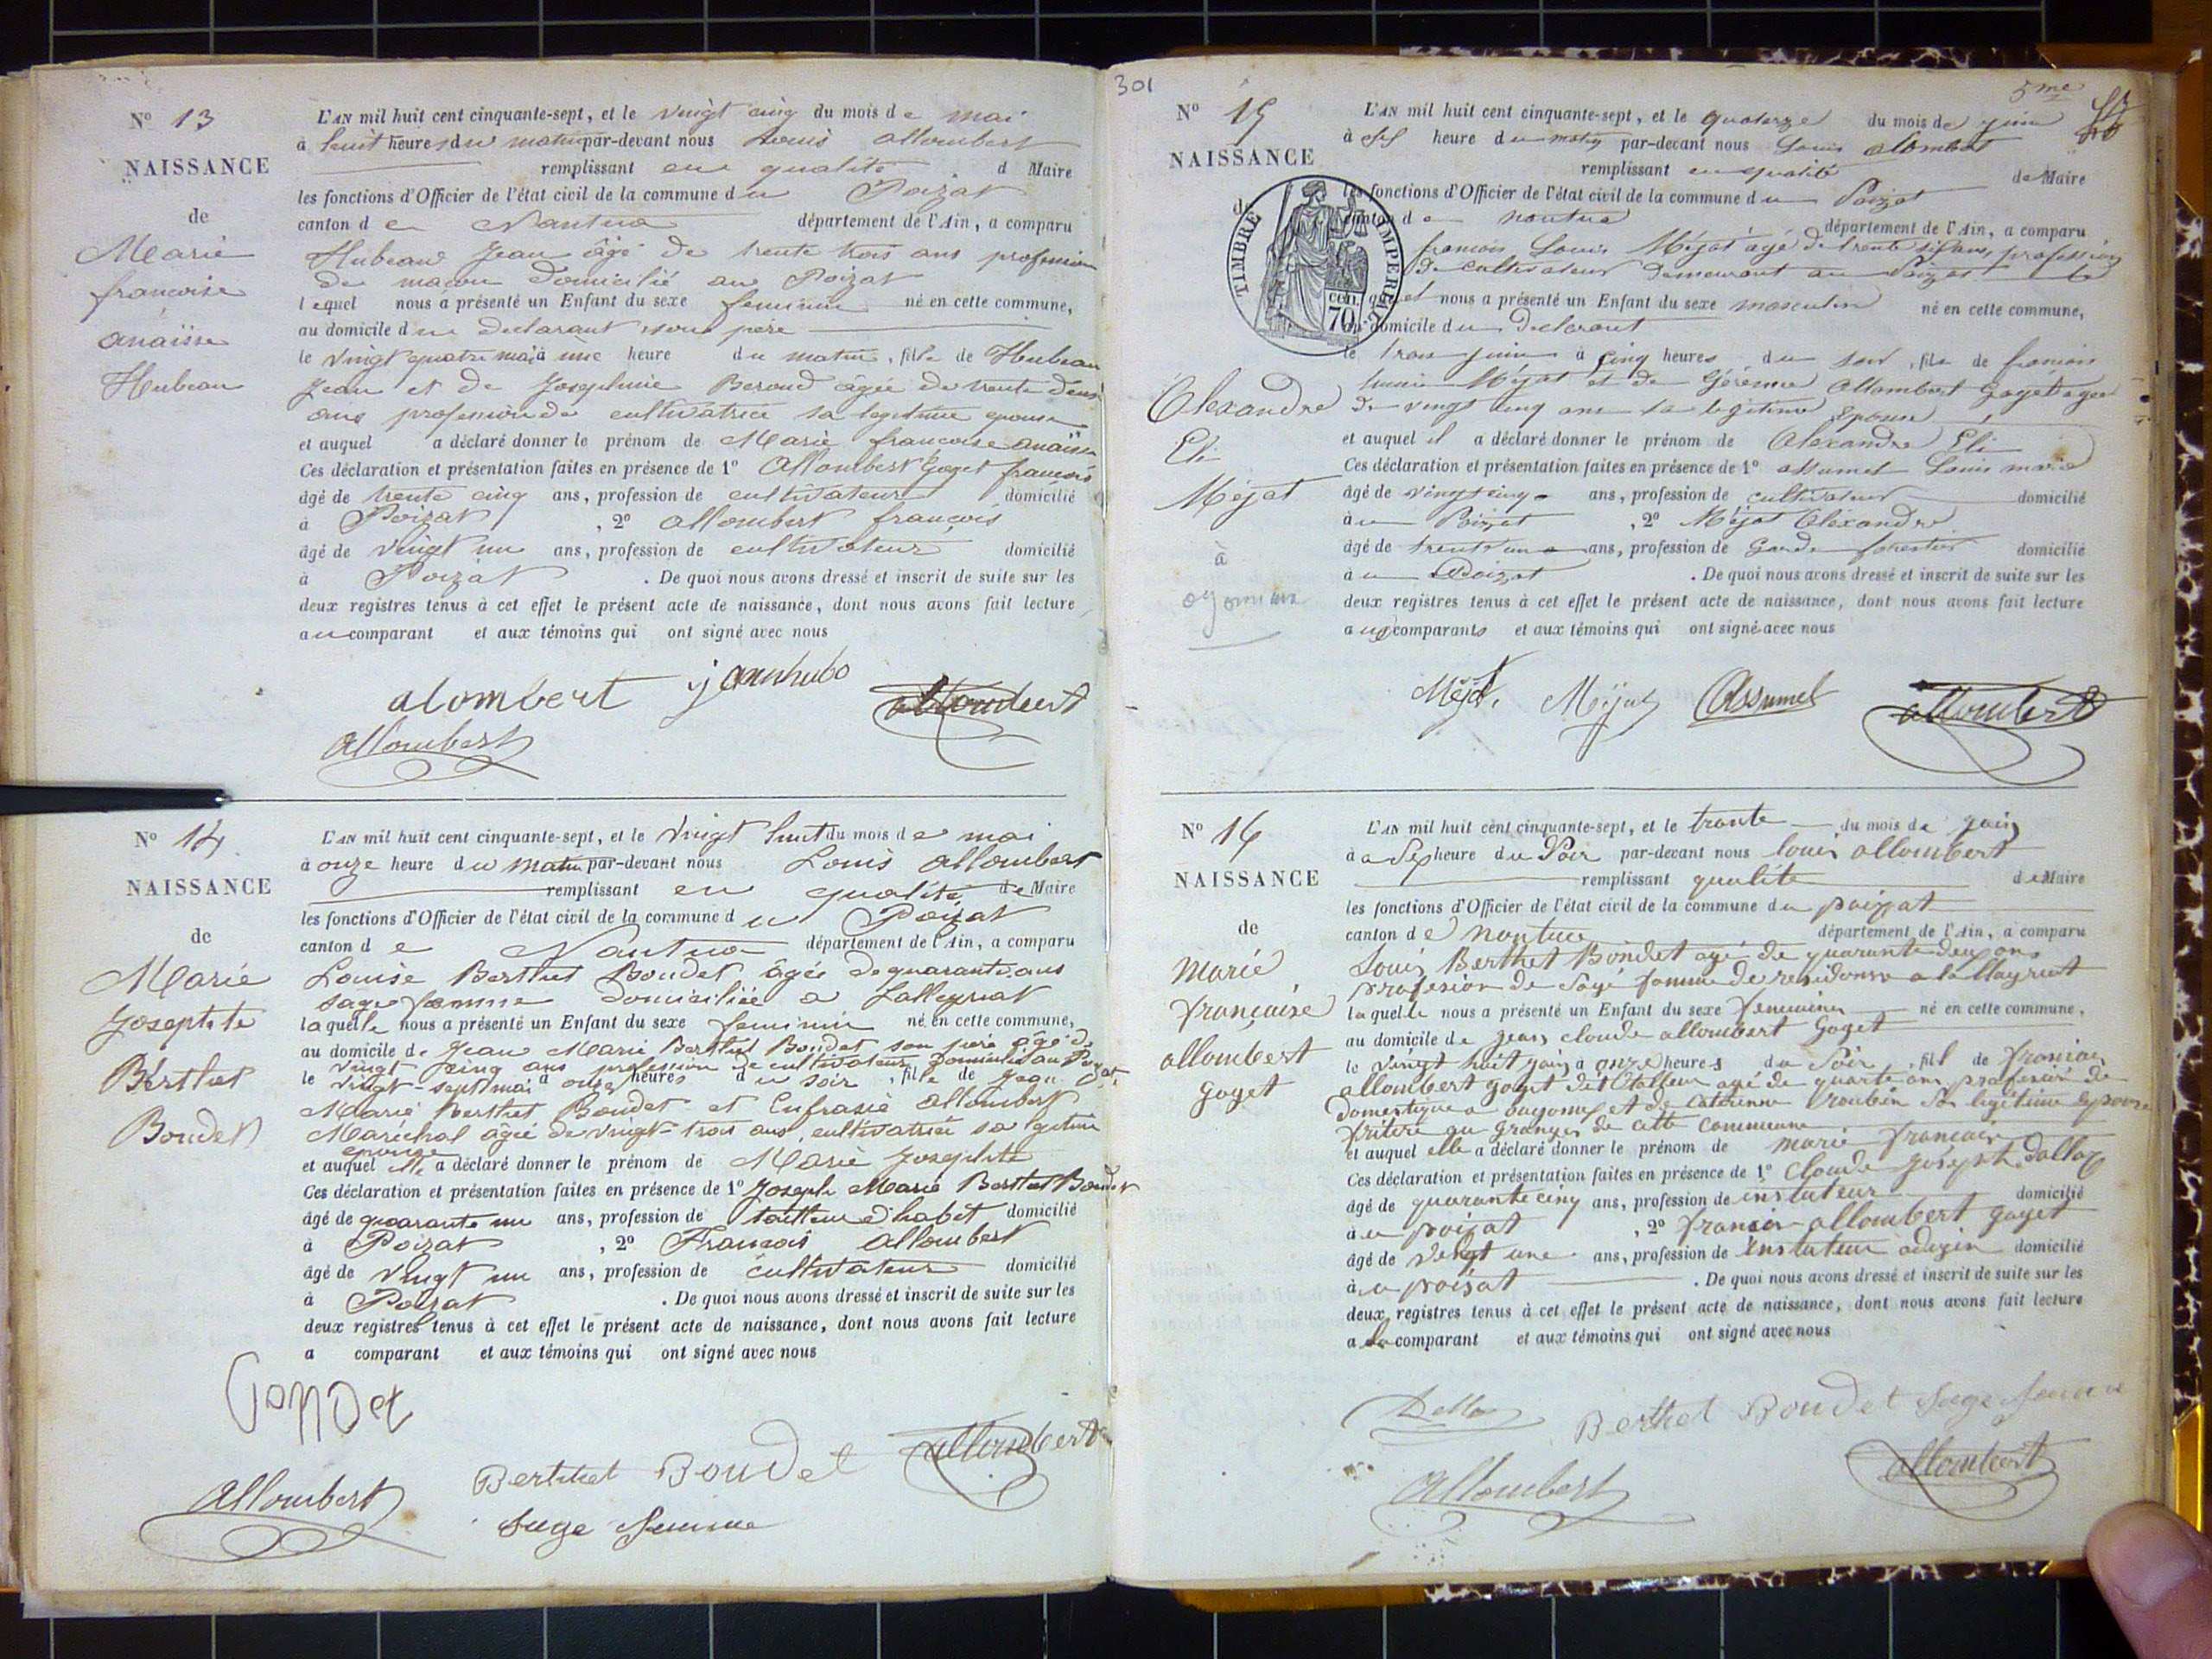 N° 13
NAISSANCE
de
Marie
francoise
anaïsse
Hubeau
L'AN mil huit cent cinquante-sept, et le vingt cinq du mois de mai
à huit heures du matin par-devant nous Louis allombert
remplissant en qualité d Maire
les fonctions d'Officier de l'état civil de la commune du Poizat
canton de Nantua département de l'Ain, a comparu
Hubeau Jean âgé de trente trois ans profession
de maçon domicilié au Poizat
lequel nous a présenté un Enfant du sexe feminin né en cette commune,
au domicile du declarant son père
le vingt quatre mai à une heure du matin, fille de Hubeau
Jean et de Josephine Beroud âgée de trente deux
ans profession de cultivatrice sa legitime epouse
et auquel a déclaré donner le prénom de Marie francoise anaïsse
Ces déclaration et présentation faites en présence de 1° Allombert Goget françois
âgé de trente cinq ans, profession de cultivateur domicilié
à Poizat, 2° allombert françois
âgé de vingt un ans, profession de cultivateur domicilié
à Poizat. De quoi nous avons dressé et inscrit de suite sur les
deux registres tenus à cet effet le présent acte de naissance, dont nous avons fait lecture
au comparant et aux témoins qui ont signé avec nous
alombert janhubo allombert
allombert
N° 14
NAISSANCE
de
Marie
Josephte
Berthet
Boudet
L'AN mil huit cent cinquante-sept, et le vingt huit du mois de mai
à onze heure du matin par-devant nous Louis allombert
remplissant en qualité de Maire
les fonctions d'Officier de l'état civil de la commune du Poizat
canton de Nantua département de l'Ain, a comparu
Louise Berthet Boudet âgée de quarante ans
sage femme domiciliée a Lalleyriat
laquelle nous a présenté un Enfant du sexe feminin né en cette commune,
au domicile de Jean Marie Berthet Boudet son père âgé de
vingt cinq ans profession de cultivateur domicilié au Poizat
le vingt-sept mai à onze heures du soir, fille de Jean
Marie Berthet Boudet et Eufrasie allombert
Maréchal âgée de vingt-trois ans, cultivatrice sa gitime
epouse
et auquel elle a déclaré donner le prénom de Marie Josephte
Ces déclaration et présentation faites en présence de 1° Joseph Marie Berthet Boudet
âgé de quarante un ans, profession de tailleur d'habit domicilié
à Poizat, 2° François allombert
âgé de vingt un ans, profession de cultivateur domicilié
à Poizat. De quoi nous avons dressé et inscrit de suite sur les
deux registres tenus à cet effet le présent acte de naissance, dont nous avons fait lecture
a comparant et aux témoins qui ont signé avec nous
allombert Berthet Boudet allombert
Sage femme
301
5me
N° 15
NAISSANCE
de
TIMBRE IMPERIAL
70 cen.
Alexandre
Eli
Méjat
à
oyonnax
L'AN mil huit cent cinquante-sept, et le quatorze du mois de juin
à six heure du matin par-devant nous Louis alombert
remplissant en qualité de Maire
les fonctions d'Officier de l'état civil de la commune du Poizat
canton de nantua département de l'Ain, a comparu
francois Louis Méjat âgé de trente six ans, profession
de cultivateur demeurant au Poizat le
quel nous a présenté un Enfant du sexe masculin né en cette commune,
au domicile du declarant
le trois juin à cinq heures du soir, fils de francois
Louis Méjat et de Allombert Goget agée
de vingt cinq ans sa legitime epouse
et auquel il a déclaré donner le prénom de Alexandre Eli
Ces déclaration et présentation faites en présence de 1° assumel Louis marie
âgé de vingt cinq ans, profession de cultivateur domicilié
au Poizat, 2° Méjat Alexandre
âgé de trente un ans, profession de Garde forestier domicilié
au Poizat. De quoi nous avons dressé et inscrit de suite sur les
deux registres tenus à cet effet le présent acte de naissance, dont nous avons fait lecture
aux comparants et aux témoins qui ont signé avec nous
Méjat Méjat Assumel allombert
N° 16
NAISSANCE
de
Marie
française
allombert
goget
L'AN mil huit cent cinquante-sept, et le trante du mois de juin
à a Sep heure du Soir par-devant nous louis allombert
remplissant qualite de Maire
les fonctions d'Officier de l'état civil de la commune du poizat
canton de nantua département de l'Ain, a comparu
Louis Berthet Boudet agé de quarante deux ans
profesion de Sage fomme de residonse a lallayriat
laquelle nous a présenté un Enfant du sexe femeninn né en cette commune,
au domicile de jean claude allombert Goget
le vingt huit juin à onze heures du Soir, fil de francois
allombert goget dit agé de quarte ans profesion de
domestique a et de Caterinne Sa legitime epouse
au Granges de cette commune
et auquel elle a déclaré donner le prénom de marie française
Ces déclaration et présentation faites en présence de 1° Claude joseph dalloz
âgé de quarante cinq ans, profession de instituteur domicilié
au poizat, 2° francois allombert goget
âgé de vingt une ans, profession de instituteur domicilié
à au poizat. De quoi nous avons dressé et inscrit de suite sur les
deux registres tenus à cet effet le présent acte de naissance, dont nous avons fait lecture
a la comparant et aux témoins qui ont signé avec nous
Dalloz Berthet Boudet Sage femme
allombert allombert